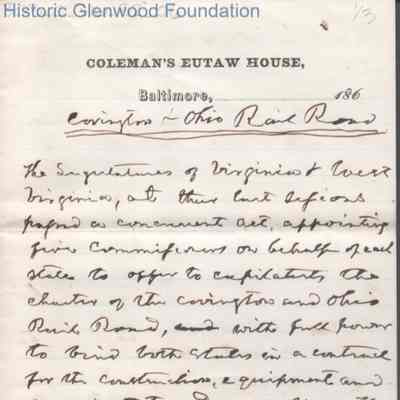 Historic Glenwood Foundation
13
COLEMAN'S EUTAW HOUSE,
Baltimore, 186
Covington & Ohio Rail Road
The Legislatures of Virginia & West
Virginia, at their last sessions
passed a concurrent act, appointing
five Commissioners on behalf of each
state to offer to capitalists the
charter of the Covington and Ohio
Rail Road, and with full power
to bind both States in a contract
for the construction, equipment and